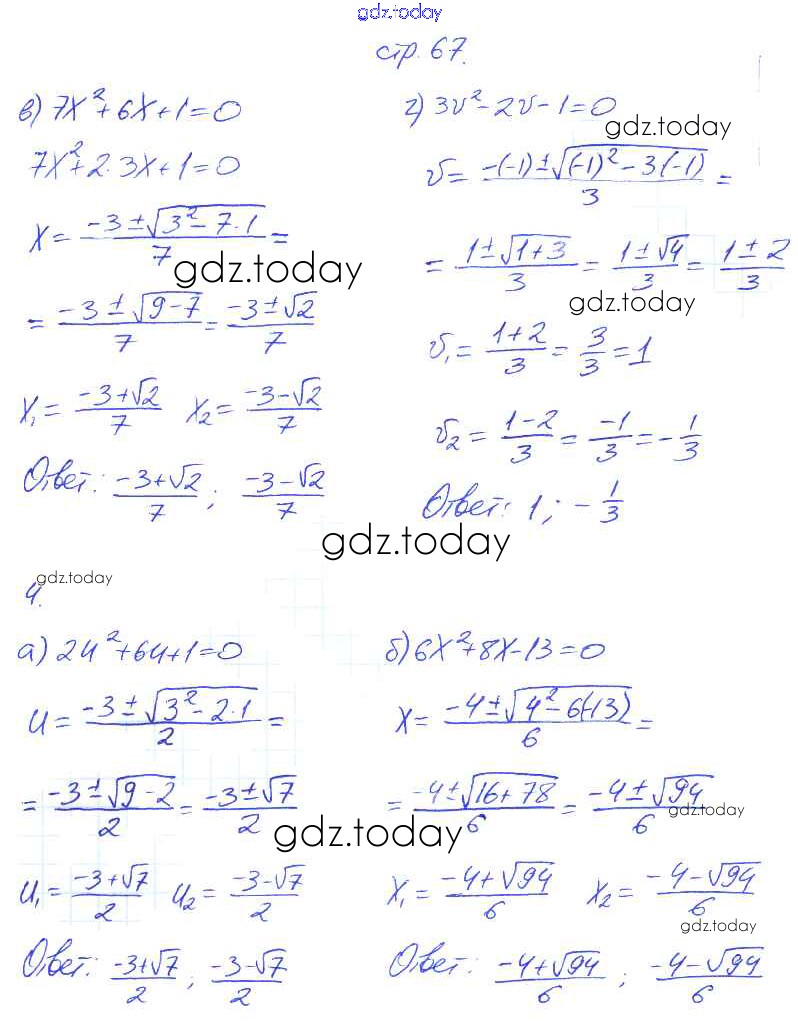 gdz.today
стр. 67.
в) 7x²+6x+1=0
7x²+2·3x+1=0
x = (-3±√(3²-7·1))/7 =
gdz.today
= (-3±√(9-7))/7 = (-3±√2)/7
x₁ = (-3+√2)/7 x₂ = (-3-√2)/7
Ответ: (-3+√2)/7 ; (-3-√2)/7
г) 3v²-2v-1=0
gdz.today
v = (-(-1)±√((-1)²-3(-1)))/3 =
= (1±√(1+3))/3 = (1±√4)/3 = (1±2)/3
gdz.today
v₁ = (1+2)/3 = 3/3 = 1
v₂ = (1-2)/3 = -1/3 = -1/3
Ответ: 1; -1/3
gdz.today
gdz.today
4.
а) 2u²+6u+1=0
u = (-3±√(3²-2·1))/2 =
= (-3±√(9-2))/2 = (-3±√7)/2
gdz.today
u₁ = (-3+√7)/2 u₂ = (-3-√7)/2
Ответ: (-3+√7)/2 ; (-3-√7)/2
б) 6x²+8x-13=0
x = (-4±√(4²-6(-13)))/6 =
= (-4±√(16+78))/6 = (-4±√94)/6
gdz.today
x₁ = (-4+√94)/6 x₂ = (-4-√94)/6
gdz.today
Ответ: (-4+√94)/6 ; (-4-√94)/6